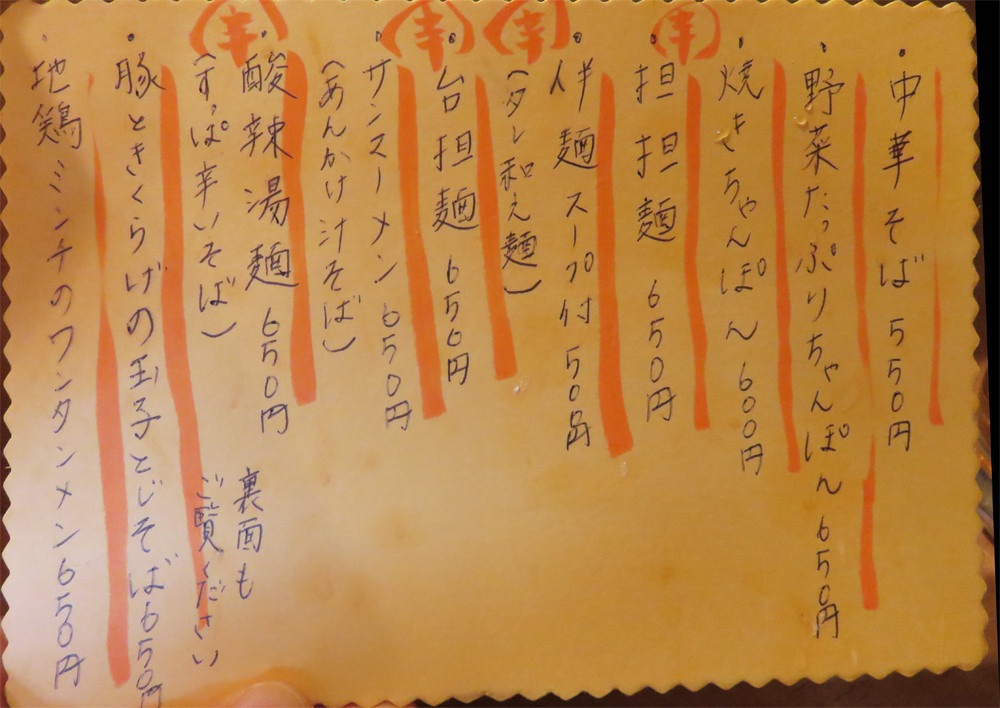 ・中華そば 550円
・野菜たっぷりちゃんぽん 650円
・焼きちゃんぽん 600円
辛
・担担麺 650円
辛
・伴麺 スープ付 550円
(タレ和え麺)
辛
・台担麺 650円
・サンスーメン 650円
(あんかけ汁そば)
辛
・酸辣湯麺 650円
(すっぱ辛いそば)
・豚ときくらげの玉子とじそば650円
・地鶏ミンチのワンタンメン650円
裏面も
ご覧ください